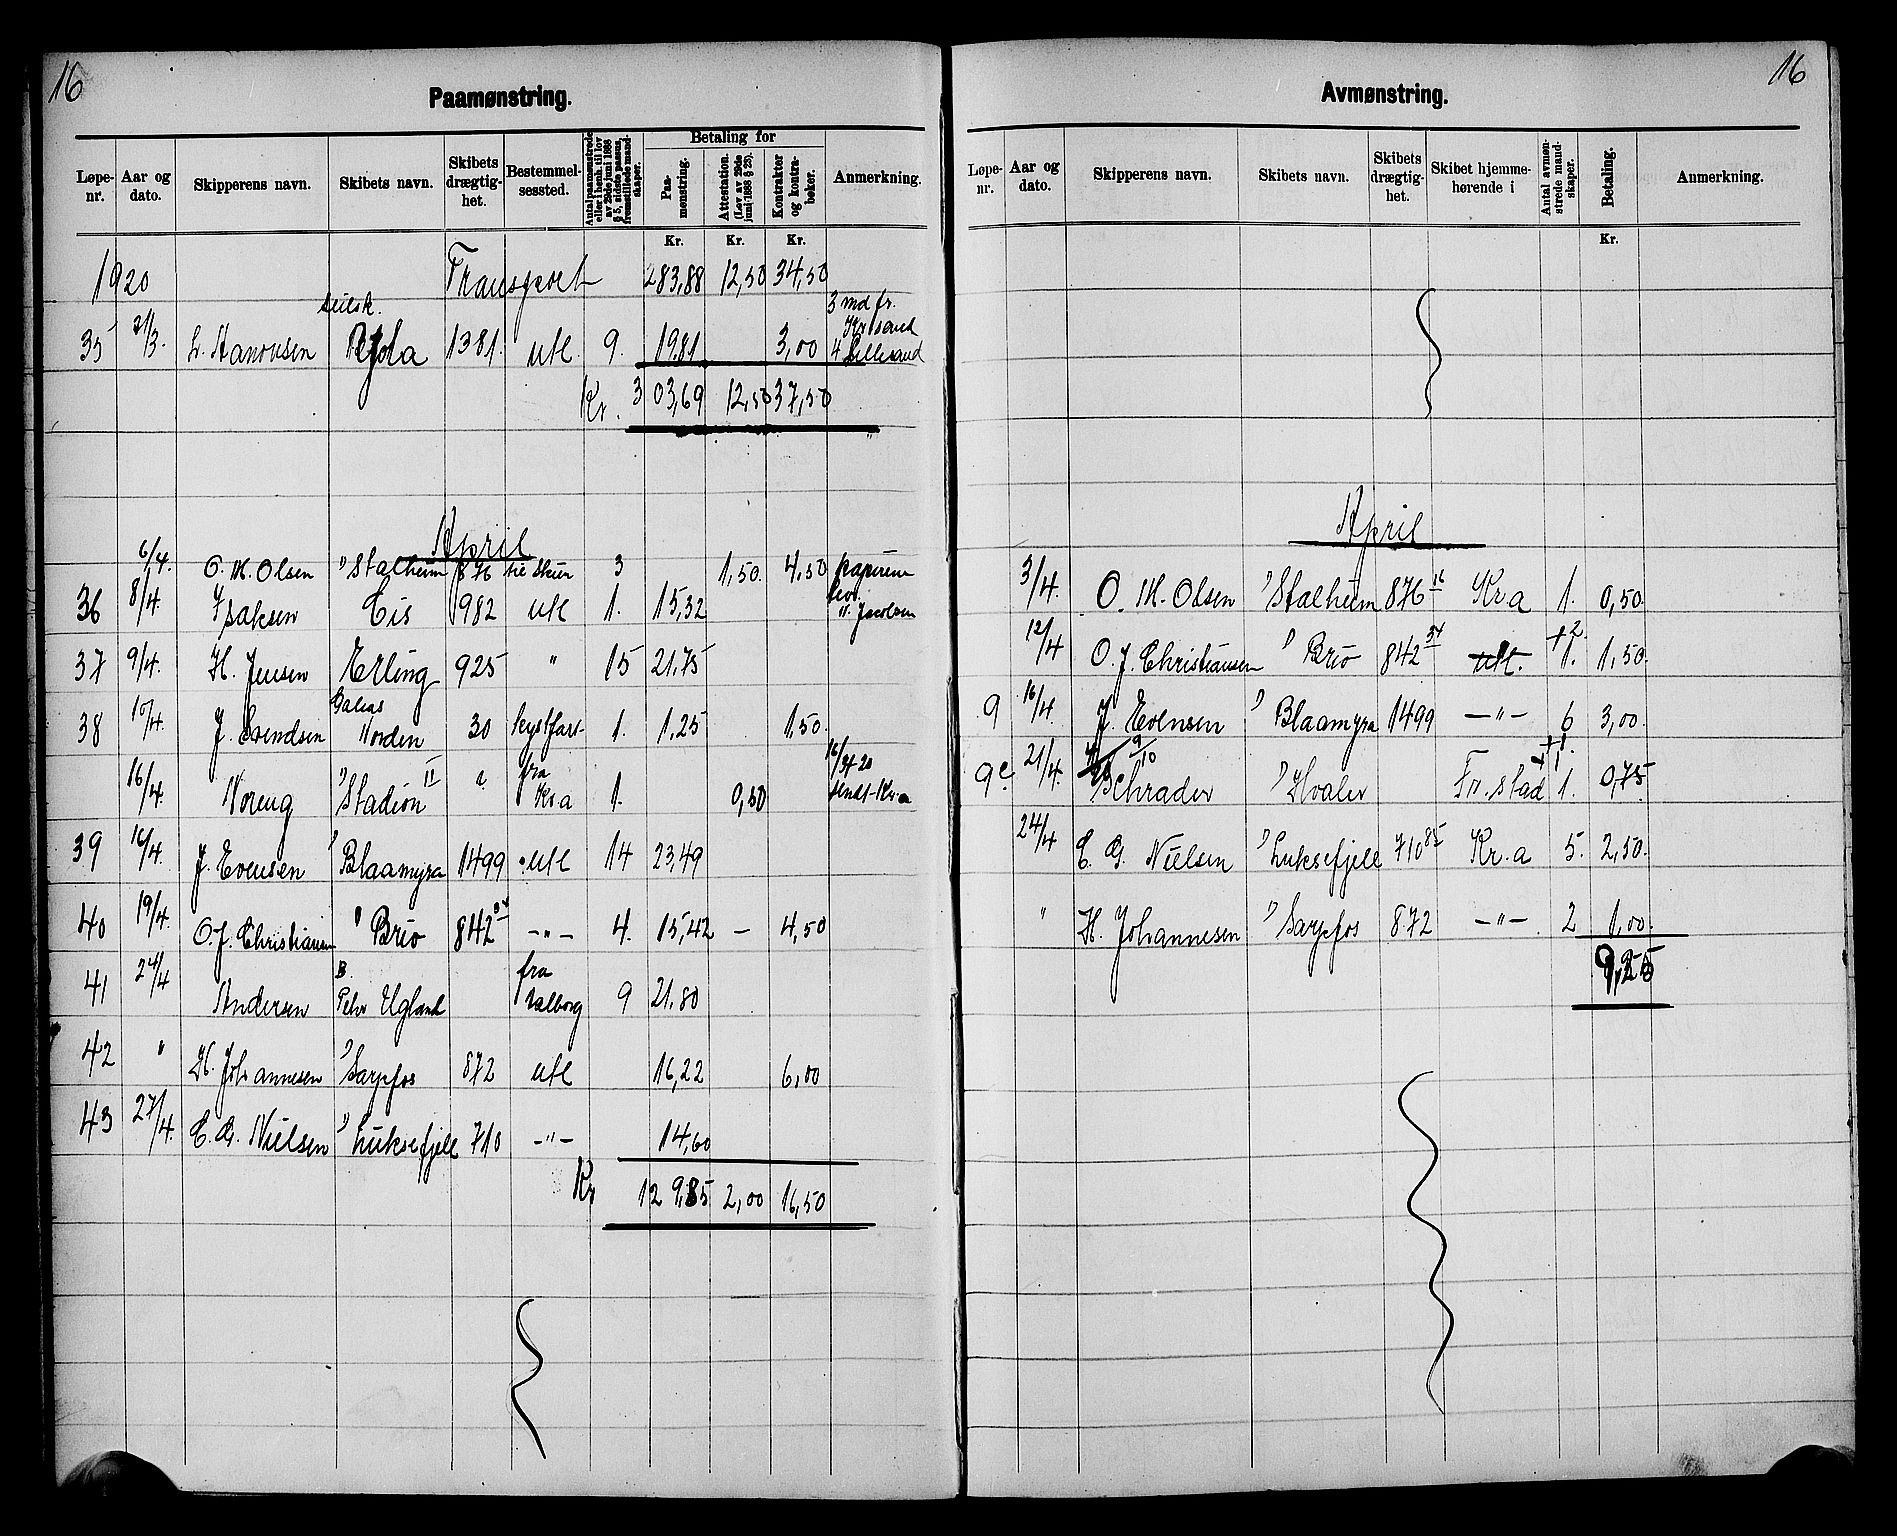 16
Paamønstring.
Løpe-nr. Aar og dato. Skipperens navn. Skibets navn. Skibets drægtig-het. Bestemmel-sessted. Antal paamønstrede eller i henh. til lov av 29de juni 1888 § 5, sidste passus, fremstillede mand-skaper. Betaling for Paa-mønstring. Attestation. (Lov av 29de juni 1888 § 25). Kontrakter og kontra-bøker. Anmerkning.
Kr. Kr. Kr.
1920 Transport 283,88 12,50 34,50
seilsk. 3 md fr.
35 31/3. utl. 9. 1381. 19,81 3,00 Kr.sand 4 Lillesand
Kr. 303,69 12,50 37,50
April
6/4. O. M. Olsen " Stalheim 876 til Skien 3 1,50. 4,50 papirerne
36 8/4. Isaksen Eis 982 utl 1. 15,32 N. Jacobsen
37 9/4. H. Jensen Erling 925 " 15 21,75
Galeas
38 10/4. J. Svendsen Norden 30 kystfart 1. 1,25 1,50
16/4. Noreng " Stadion II " fra Kr.a 1. 0,50 16/4-20 sendt Kr.a
39 16/4. J. Evensen " Blaamyra 1499 utl 14 23,49
40 19/4. O. J. Christiansen " Brio 842 34 -"- 4. 15,42 - 4,50
41 24/4 Andersen B. Peter Ugland fra Aalborg 9 21,80
42 " H. Johannesen " Sarpfos 872 utl 16,22 6,00
43 27/4. C. G. Nielsen " Luksefjell 710 -"- 14,60
Kr 129,85 2,00 16,50
16
Avmønstring.
Løpe-nr. Aar og dato. Skipperens navn. Skibets navn. Skibets drægtig-het. Skibet hjemme-hørende i Antal avmøn-strede mand-skaper. Betaling. Anmerkning.
Kr.
April
3/4. O. M. Olsen " Stalheim 876 16 Kr.a 1. 0,50.
12/4 O. J. Christiansen " Brio 842 34 utl. + 2 1. 1,50.
9 16/4. J. Evensen " Blaamyra 1499 -"- 6 3,00.
9e 21/4. 9/10 Schrader " Hvaler Fr. stad + 1. 1. 0,75
24/4 C. G. Nielsen " Luksefjell 710 85 Kr.a 5. 2,50.
" H. Johannesen " Sarpfos 872 -"- 2 1,00.
9,25